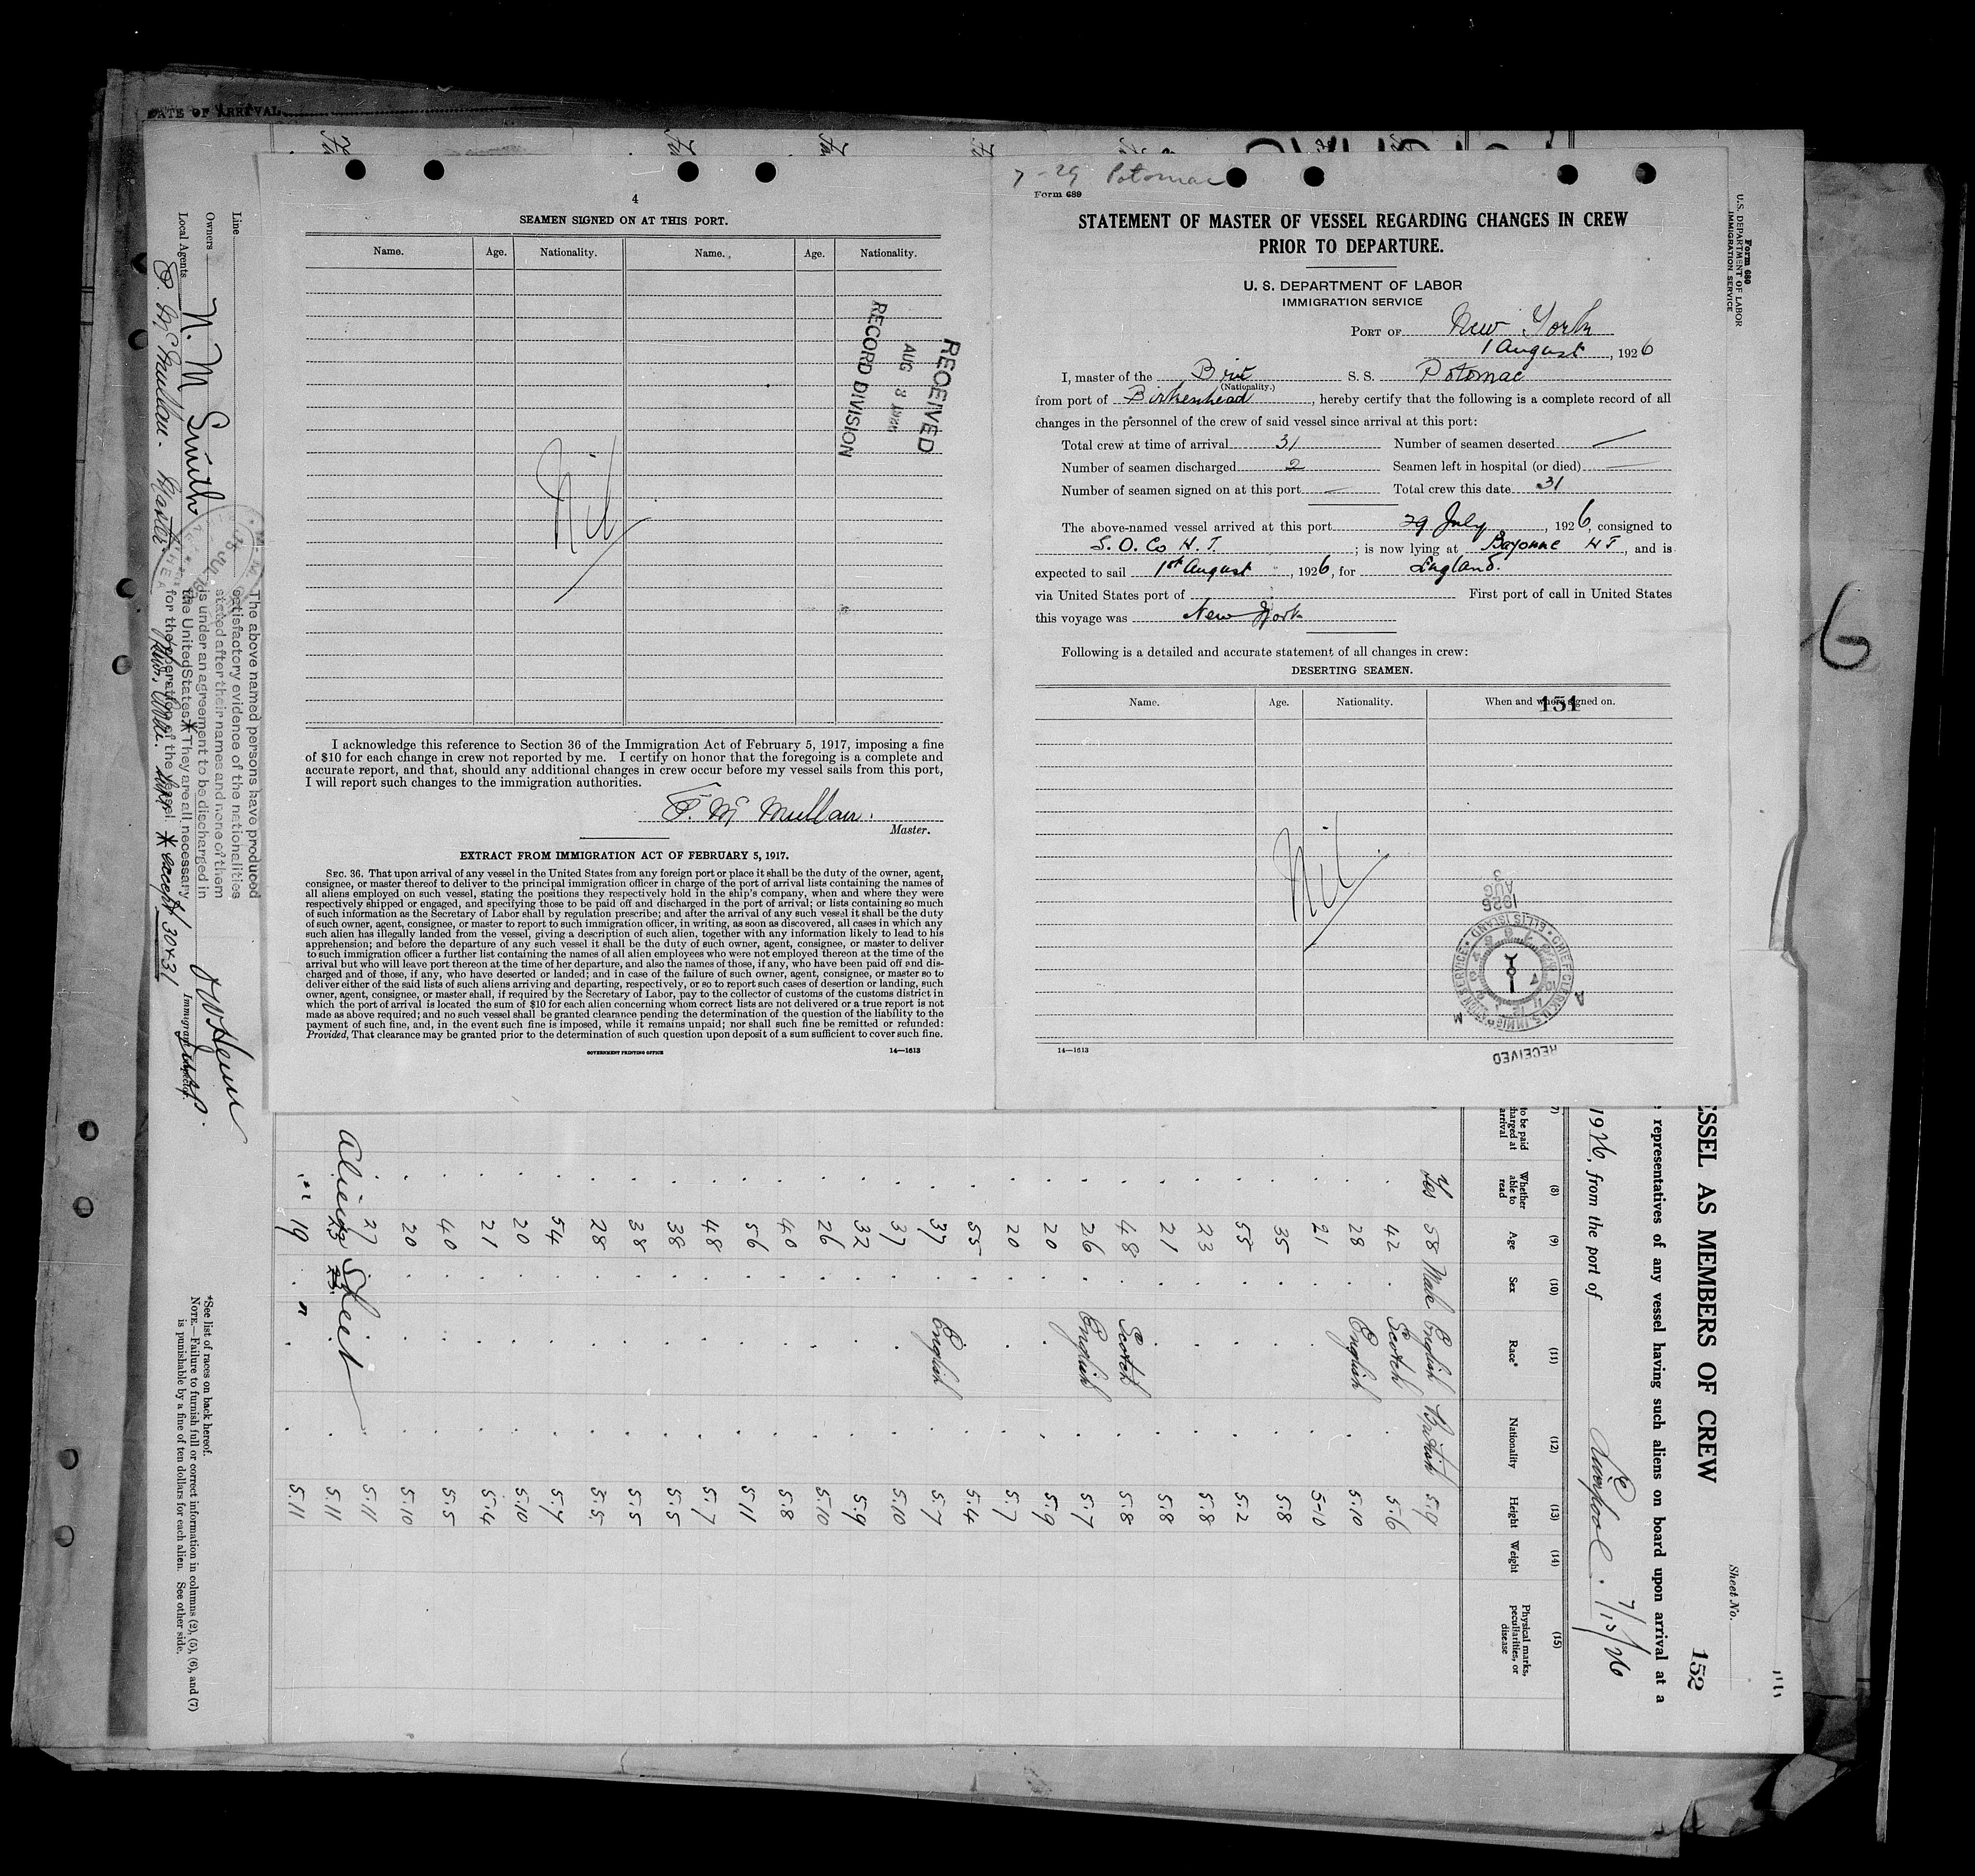 DATE OF ARRIVAL
4
SEAMEN SIGNED ON AT THIS PORT.
Name. Age. Nationality. Name. Age. Nationality.
RECEIVED
AUG 3
RECORD DIVISION
Nil
I acknowledge this reference to Section 36 of the Immigration Act of February 5, 1917, imposing a fine
of $10 for each change in crew not reported by me. I certify on honor that the foregoing is a complete and
accurate report, and that, should any additional changes in crew occur before my vessel sails from this port,
I will report such changes to the immigration authorities.
F. Mc Mullan.
Master.
EXTRACT FROM IMMIGRATION ACT OF FEBRUARY 5, 1917.
SEC. 36. That upon arrival of any vessel in the United States from any foreign port or place it shall be the duty of the owner, agent,
consignee, or master thereof to deliver to the principal immigration officer in charge of the port of arrival lists containing the names of
all aliens employed on such vessel, stating the positions they respectively hold in the ship's company, when and where they were
respectively shipped or engaged, and specifying those to be paid off and discharged in the port of arrival; or lists containing so much
of such information as the Secretary of Labor shall by regulation prescribe; and after the arrival of any such vessel it shall be the duty
of such owner, agent, consignee, or master to report to such immigration officer, in writing, as soon as discovered, all cases in which any
such alien has illegally landed from the vessel, giving a description of such alien, together with any information likely to lead to his
apprehension; and before the departure of any such vessel it shall be the duty of such owner, agent, consignee, or master to deliver
to such immigration officer a further list containing the names of all alien employees who were not employed thereon at the time of the
arrival but who will leave port thereon at the time of her departure, and also the names of those, if any, who have been paid off and dis-
charged and of those, if any, who have deserted or landed; and in case of the failure of such owner, agent, consignee, or master so to
deliver either of the said lists of such aliens arriving and departing, respectively, or so to report such cases of desertion or landing, such
owner, agent, consignee, or master shall, if required by the Secretary of Labor, pay to the collector of customs of the customs district in
which the port of arrival is located the sum of $10 for each alien concerning whom correct lists are not delivered or a true report is not
made as above required; and no such vessel shall be granted clearance pending the determination of the question of the liability to the
payment of such fine, and, in the event such fine is imposed, while it remains unpaid; nor shall such fine be remitted or refunded:
Provided, That clearance may be granted prior to the determination of such question upon deposit of a sum sufficient to cover such fine.
GOVERNMENT PRINTING OFFICE 14—1613
7-29 Potomac
Form 689
STATEMENT OF MASTER OF VESSEL REGARDING CHANGES IN CREW
PRIOR TO DEPARTURE.
U. S. DEPARTMENT OF LABOR
IMMIGRATION SERVICE
PORT OF New York
1 August, 1926
I, master of the Brit S. S. Potomac
(Nationality.)
from port of Birkenhead, hereby certify that the following is a complete record of all
changes in the personnel of the crew of said vessel since arrival at this port:
Total crew at time of arrival 31 Number of seamen deserted —
Number of seamen discharged 2 Seamen left in hospital (or died) —
Number of seamen signed on at this port — Total crew this date 31
The above-named vessel arrived at this port 29 July, 1926, consigned to
S. O. Co N. J.; is now lying at Bayonne N J, and is
expected to sail 1st August, 1926, for England.
via United States port of First port of call in United States
this voyage was New York
Following is a detailed and accurate statement of all changes in crew:
DESERTING SEAMEN.
Name. Age. Nationality. When and where signed on.
151
Nil
1926
AUG
3
CHIEF CLERK U.S. IMMIGRATION SERVICE • ELLIS ISLAND
RECEIVED
14—1613
Form 680
U. S. DEPARTMENT OF LABOR
IMMIGRATION SERVICE
6
Sheet No.
152
ESSEL AS MEMBERS OF CREW
representatives of any vessel having such aliens on board upon arrival at a
1926, from the port of Liverpool. 7/15/26
(7) (8) (9) (10) (11) (12) (13) (14) (15)
to be paid
charged at
arrival
Whether
able to
read
Age
Sex
Race*
Nationality
Height
Weight
Physical marks,
peculiarities, or
disease
Yes 58 Male English British 5.9
42 Scotch 5.6
28 English 5.10
21 5-10
35 5.8
55 5.2
23 5.8
21 5.8
48 Scotch 5.8
26 English 5.7
20 5.9
20 5.7
55 5.4
37 English 5.7
37 5.10
32 5.9
26 5.10
40 5.8
56 5.11
48 5.7
38 5.5
38 5.5
28 5.5
54 5.7
20 5.10
21 5.4
40 5.5
20 5.10
27 5.11
23 5.11
19 " 5.11
Line
Owners
Local Agents
N. M Smith
Master
The above named persons have produced
satisfactory evidence of the nationalities
stated after their names and none of them
is under an agreement to be discharged in
the United States. * They are all necessary
for the operation of the vessel. * except 30 & 31
Immigrant Inspector.
*See list of races on back hereof.
NOTE.—Failure to furnish full or correct information in columns (2), (5), (6), and (7)
is punishable by a fine of ten dollars for each alien. See other side.